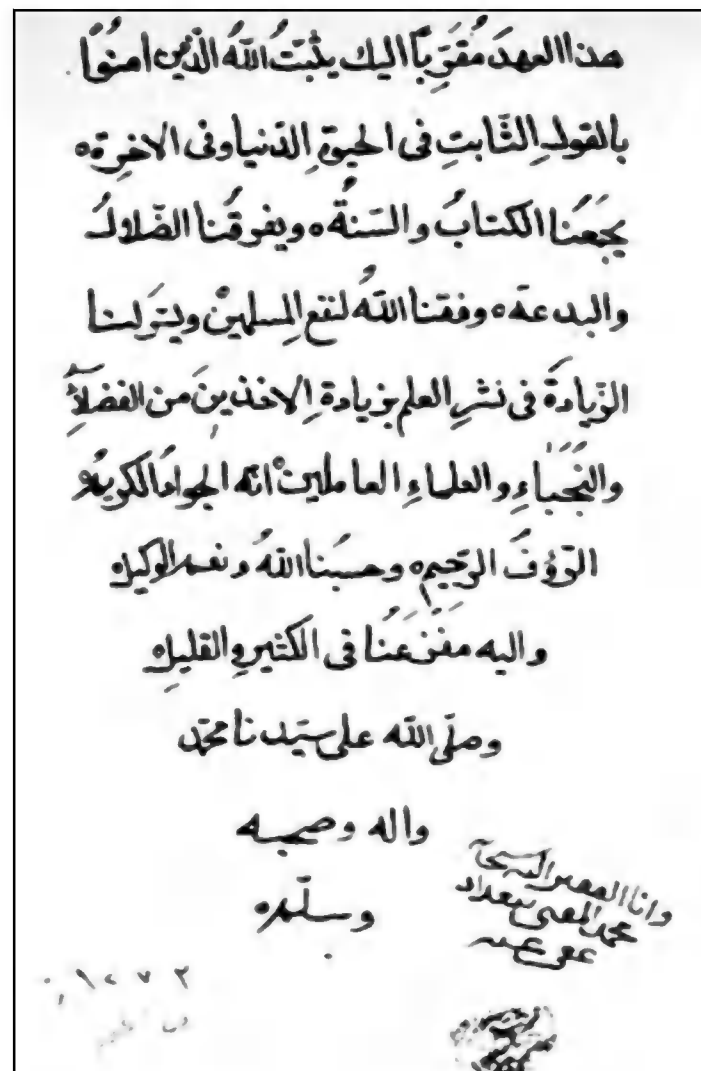 هذا العهدَ مُقَرِّباً اليك يثبّتُ اللهُ الّذين امنُوا
بالقولِ الثّابتِ فى الحيوةِ الدّنيا وفى الاخرةِ ه
يجمعُنا الكتابُ والسّنةُ ه ويفرقُنا الضّلالُ
والبدعة ه وفقنا اللهُ لنفع المسلمينْ ويسّر لنا
الزّيادةَ فى نشرِ العلم بزيادةِ الاخذينَ من الفضلآءِ
والنُّجَبَاءِ والعلماءِ العاملينْ انّه الجوادُ الكريمُ
الرّؤفُ الرّحيم ه وحسبُنا اللهُ ونعم الوكيل ه
واليه مفزعُنا فى الكثيرِ والقليل ه
وصلّى الله على سيّدنا محمّد
واله وصحبه
وسلّم ه
وانا الفقير اليه
محمد المفتى ببغداد
عفى عنه